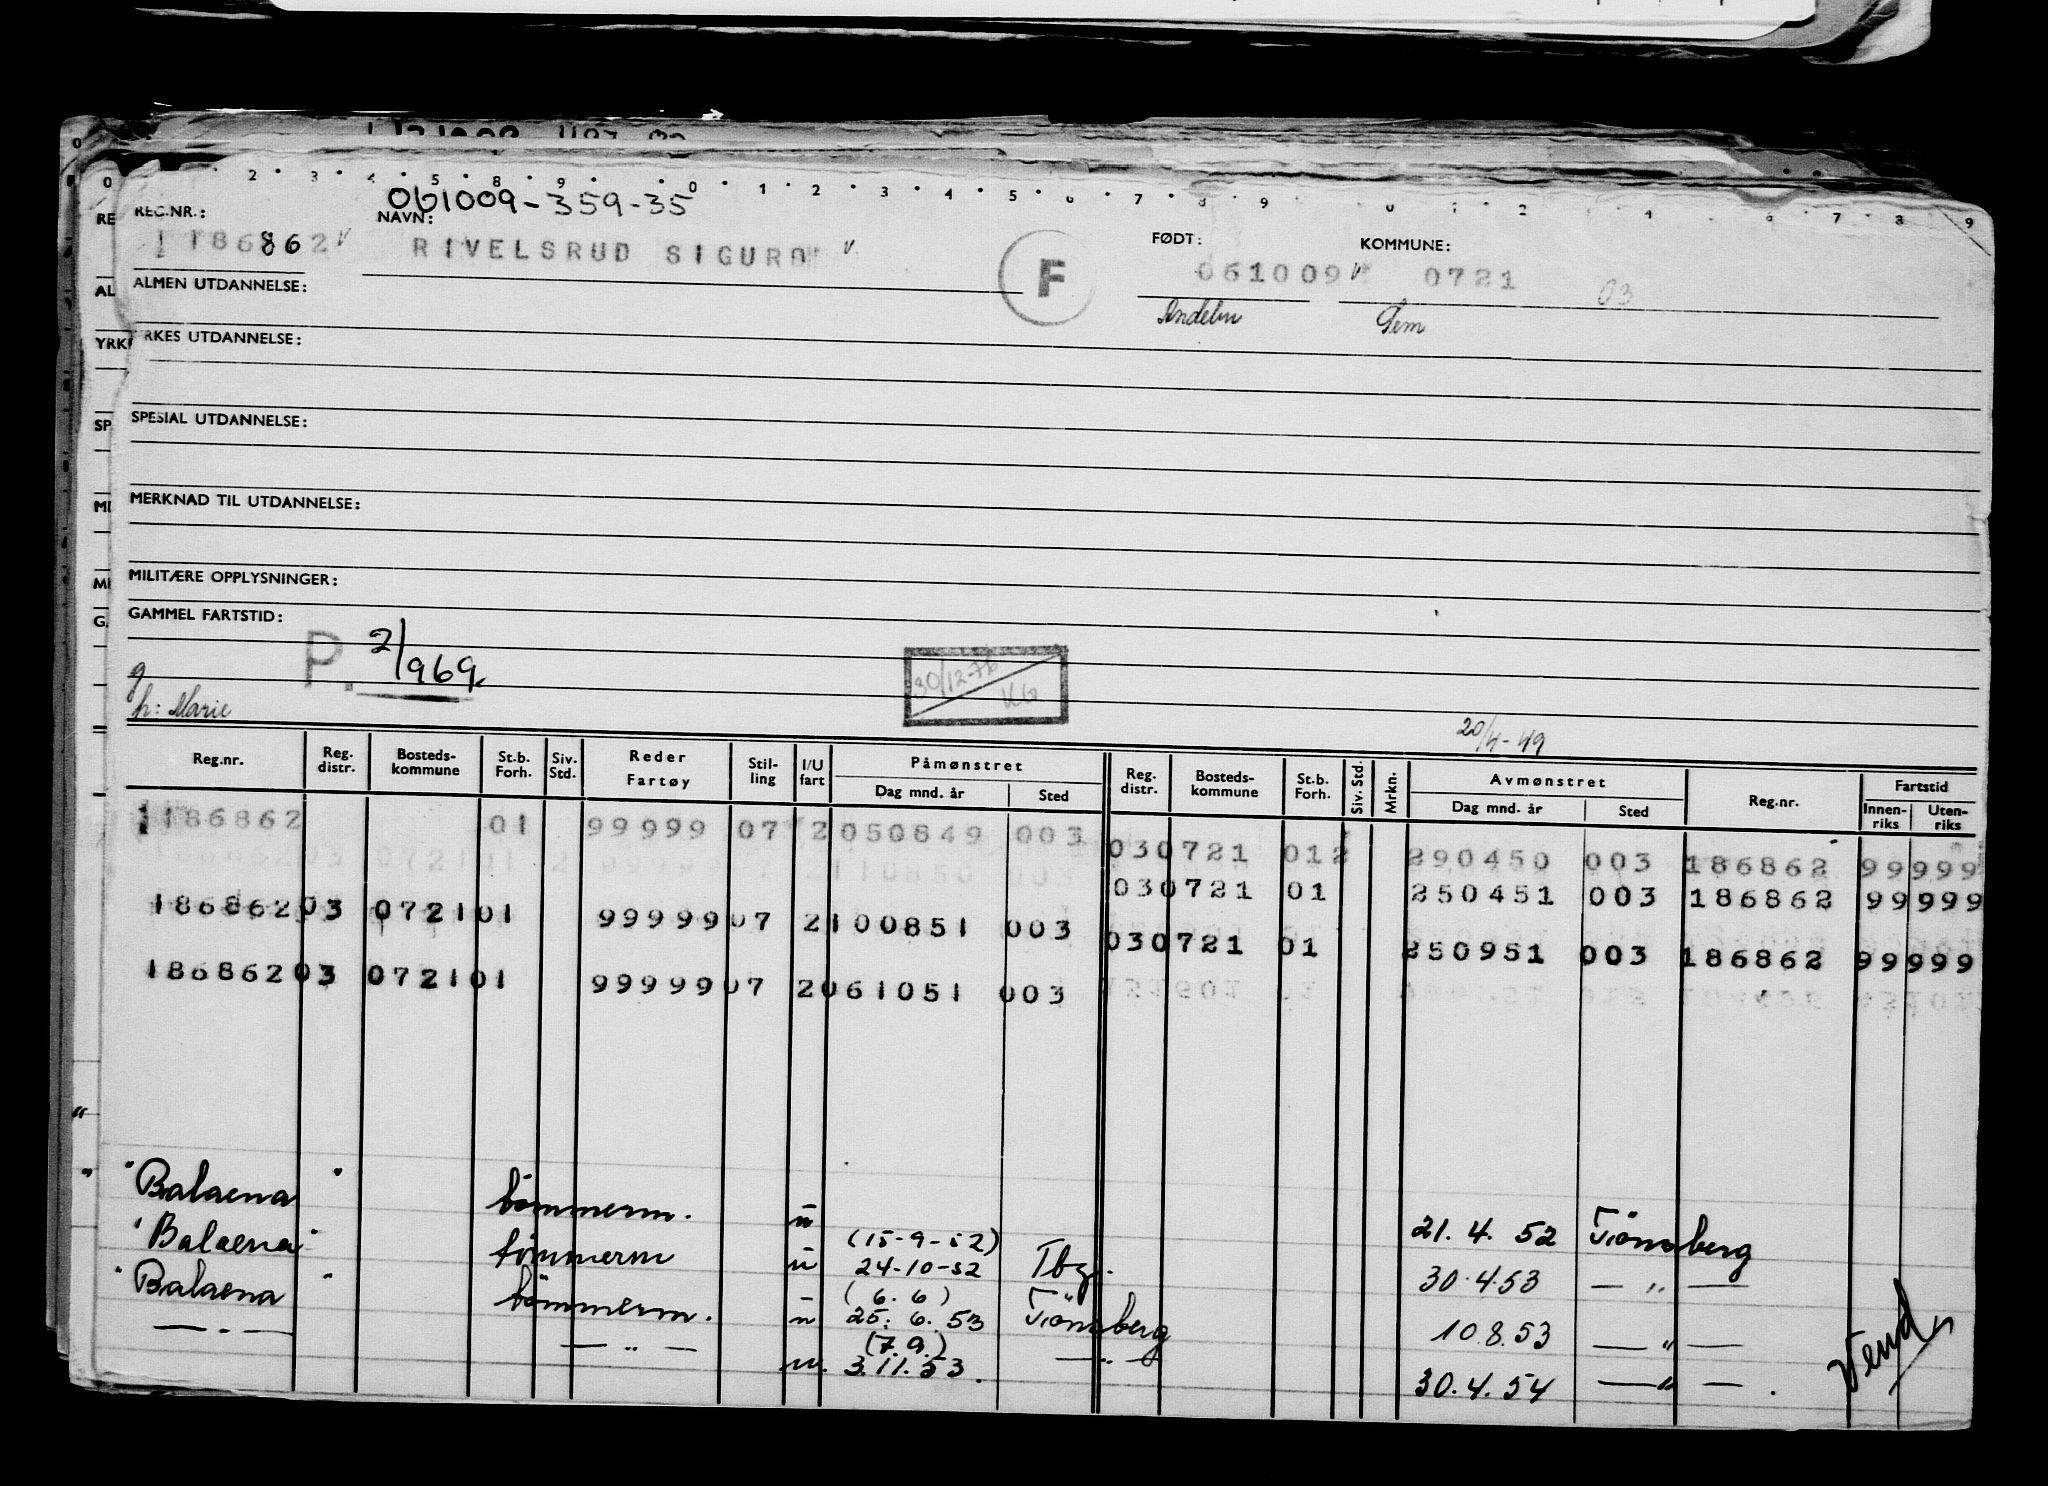 061009-359-35
REG.NR.: NAVN: FØDT: KOMMUNE:
186862 RIVELSRUD SIGURD F 061009 0721 03
Andebu Sem
ALMEN UTDANNELSE:
YRKES UTDANNELSE:
SPESIAL UTDANNELSE:
MERKNAD TIL UTDANNELSE:
MILITÆRE OPPLYSNINGER:
GAMMEL FARTSTID:
P. 2/1969
30/12-76 KG
g
h: Marie
20/4-49
Reg.nr. Reg. distr. Bosteds-kommune St.b. Forh. Siv. Std. Reder Fartøy Stil-ling I/U fart Påmønstret Dag mnd. år Sted Reg. distr. Bosteds-kommune St.b. Forh. Siv. Std. Mrkn. Avmønstret Dag mnd. år Sted Reg.nr. Fartstid Innen-riks Uten-riks
186862 01 99999 07 2 050849 003
030721 012 290450 003 186862 99999
18686203 072101 2 99999 07 2110850 003
030721 01 250451 003 186862 99999
18686203 072101 9999907 2100851 003
030721 01 250951 003 186862 99999
18686203 072101 9999907 2061051 003
"Balaena" tömmerm. u 21. 4. 52 Tönsberg
"Balaena" tömmerm u (15-9-52) 24-10-52 Tbg. 30.4.53 — " —
"Balaena" tömmerm. u (6. 6) 25. 6. 53 Tönsberg 10.8.53 — " —
— " — — " — u. (7.9.) 3.11.53. — " — 30.4.54 — " — .
Vend